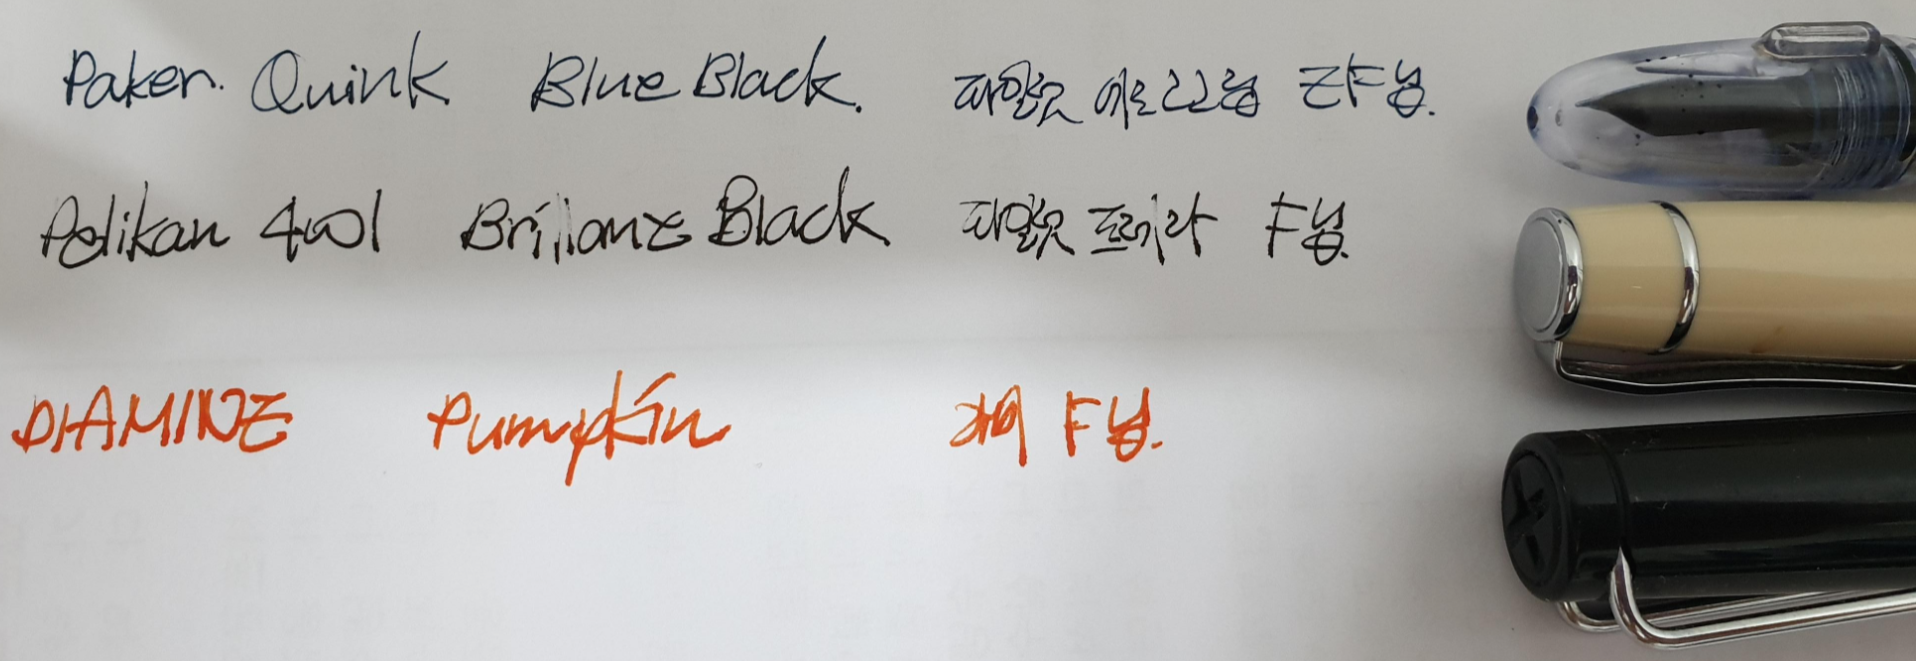 Paker. Quink Blue Black. 파일럿 에르고그립 EF닙.
Pelikan 4001 Brillanz Black 파일럿 프레라 F닙.
DIAMINE Pumpkin 라미 F닙.